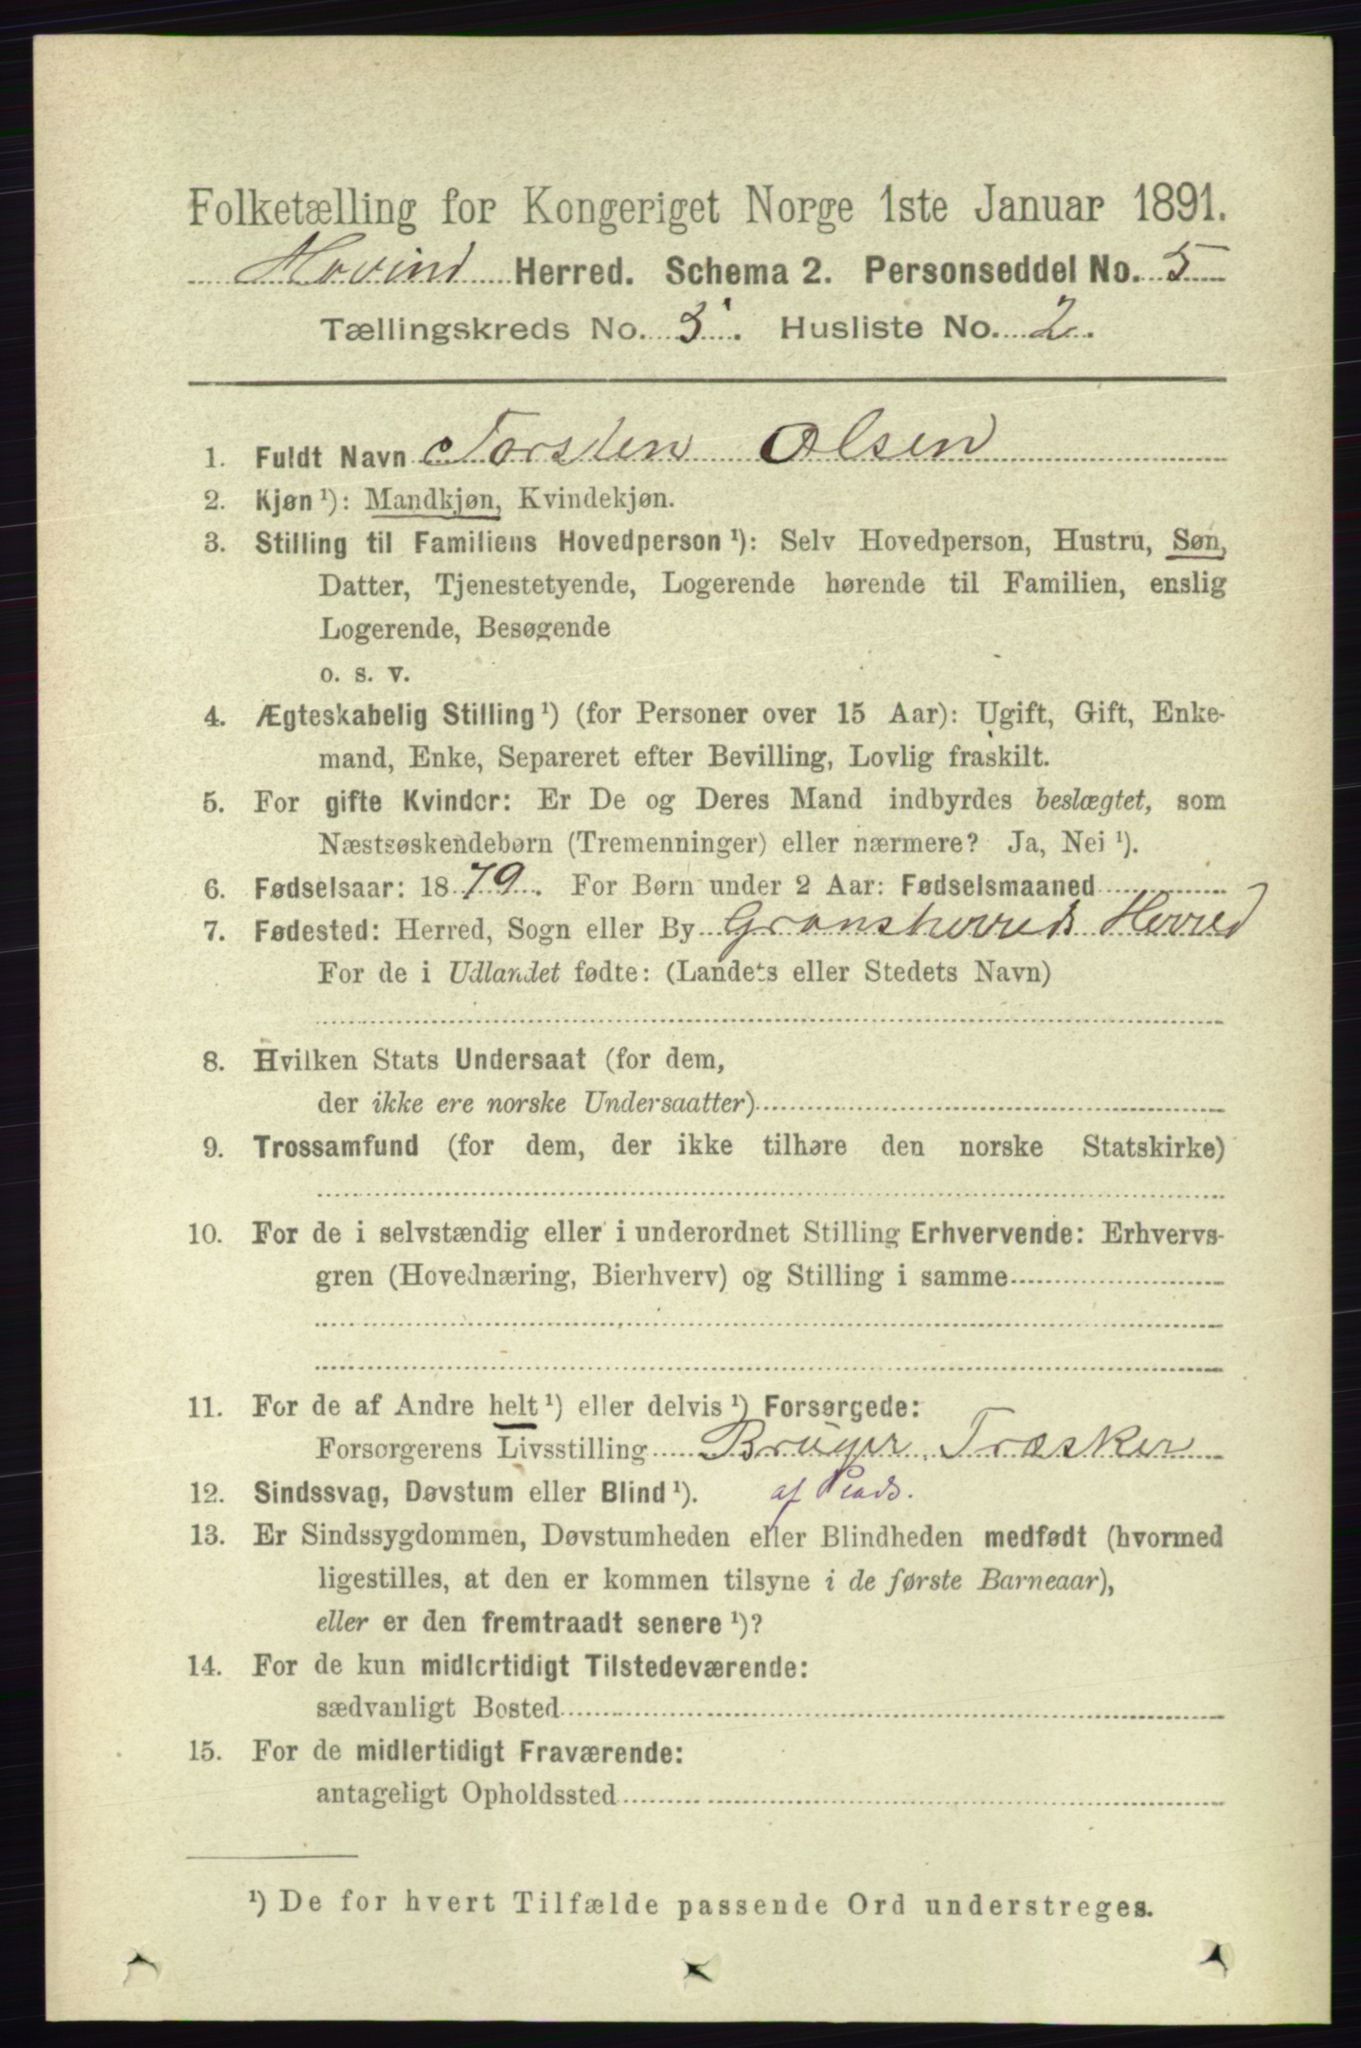 Folketælling for Kongeriget Norge 1ste Januar 1891.
Hovind Herred. Schema 2. Personseddel No. 5
Tællingskreds No. 3. Husliste No. 2.
1. Fuldt Navn Torsten Olsen
2. Kjøn ¹): Mandkjøn, Kvindekjøn.
3. Stilling til Familiens Hovedperson ¹): Selv Hovedperson, Hustru, Søn,
Datter, Tjenestetyende, Logerende hørende til Familien, enslig
Logerende, Besøgende
o. s. v.
4. Ægteskabelig Stilling ¹) (for Personer over 15 Aar): Ugift, Gift, Enke-
mand, Enke, Separeret efter Bevilling, Lovlig fraskilt.
5. For gifte Kvinder: Er De og Deres Mand indbyrdes beslægtet, som
Næstsøskendebørn (Tremenninger) eller nærmere? Ja, Nei ¹).
6. Fødselsaar: 1879. For Børn under 2 Aar: Fødselsmaaned
7. Fødested: Herred, Sogn eller By Gransherreds Herred
For de i Udlandet fødte: (Landets eller Stedets Navn)
8. Hvilken Stats Undersaat (for dem,
der ikke ere norske Undersaatter)
9. Trossamfund (for dem, der ikke tilhøre den norske Statskirke)
10. For de i selvstændig eller i underordnet Stilling Erhvervende: Erhvervs-
gren (Hovednæring, Bierhverv) og Stilling i samme
11. For de af Andre helt ¹) eller delvis ¹) Forsørgede:
Forsørgerens Livsstilling Bruger, Træsker
12. Sindssvag, Døvstum eller Blind ¹). af Plads.
13. Er Sindssygdommen, Døvstumheden eller Blindheden medfødt (hvormed
ligestilles, at den er kommen tilsyne i de første Barneaar),
eller er den fremtraadt senere ¹)?
14. For de kun midlertidigt Tilstedeværende:
sædvanligt Bosted
15. For de midlertidigt Fraværende:
antageligt Opholdssted
¹) De for hvert Tilfælde passende Ord understreges.